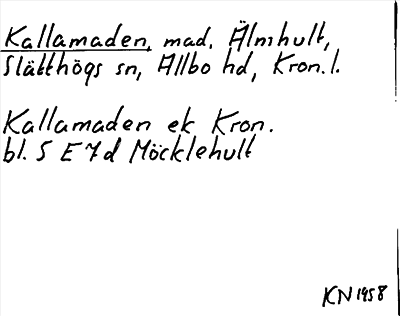 Kallamaden, mad, Älmhult,
Slätthögs sn, Allbo hd, Kron.l.
Kallamaden ek Kron.
bl. 5 E 7 d Möcklehult
KN 1958